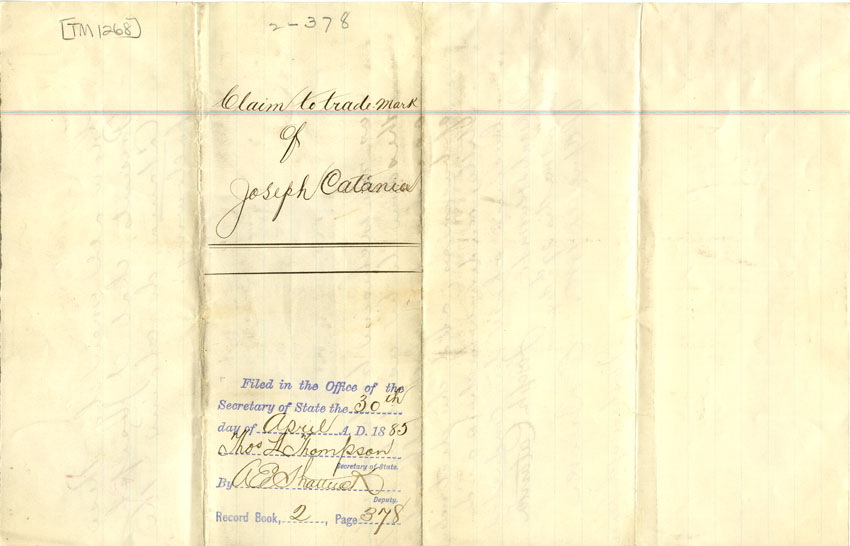 [TM1268]
2-378
Claim to trade mark
of
Joseph Catania
Filed in the Office of the
Secretary of State the 30th
day of April A. D. 1885
Thos L Thompson
Secretary of State.
By A E Shattuck
Deputy.
Record Book, 2, Page 378